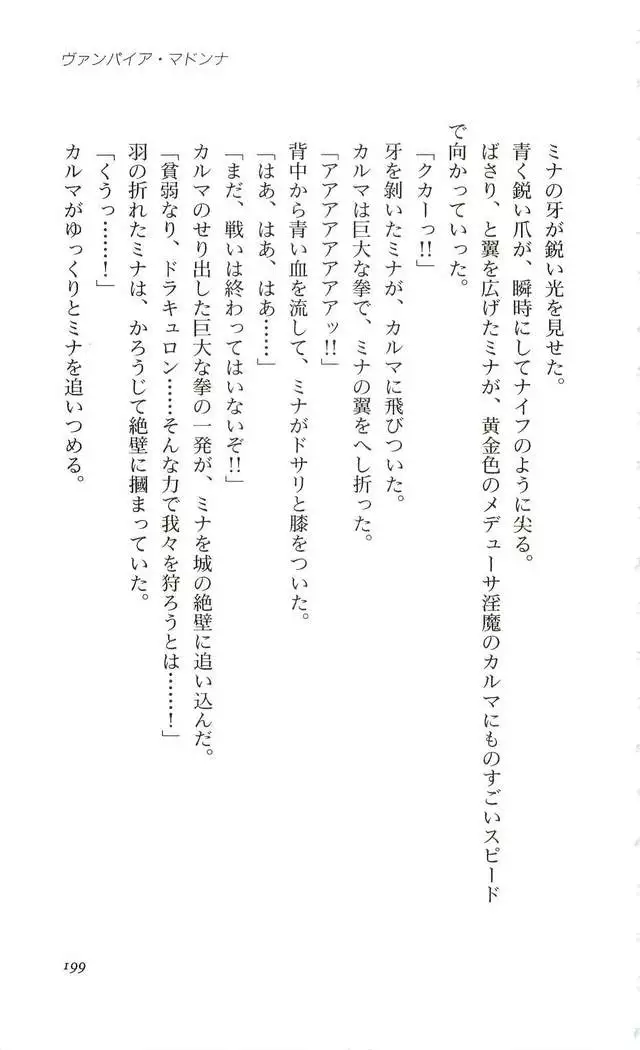 ヴァンパイア・マドンナ
ミナの牙が鋭い光を見せた。
青く鋭い爪が、瞬時にしてナイフのように尖る。
ばさり、と翼を広げたミナが、黄金色のメデューサ淫魔のカルマにものすごいスピード
で向かっていった。
「クカーっ!!」
牙を剝いたミナが、カルマに飛びついた。
カルマは巨大な拳で、ミナの翼をへし折った。
「アアアアアアアッ!!」
背中から青い血を流して、ミナがドサリと膝をついた。
「はあ、はあ、はあ……」
「まだ、戦いは終わってはいないぞ!!」
カルマのせり出した巨大な拳の一発が、ミナを城の絶壁に追い込んだ。
「貧弱なり、ドラキュロン……そんな力で我々を狩ろうとは……！」
羽の折れたミナは、かろうじて絶壁に摑まっていた。
「くうっ……！」
カルマがゆっくりとミナを追いつめる。
199